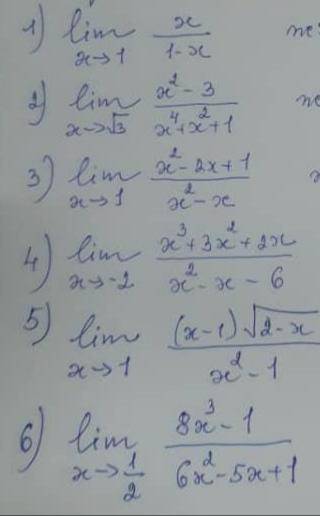 1) lim x→1 x/(1-x)
2) lim x→√3 (x²-3)/(x⁴+x²+1)
3) lim x→1 (x²-2x+1)/(x²-x)
4) lim x→-2 (x³+3x²+2x)/(x²-x-6)
5) lim x→1 (x-1)√(2-x)/(x²-1)
6) lim x→1/2 (8x³-1)/(6x²-5x+1)